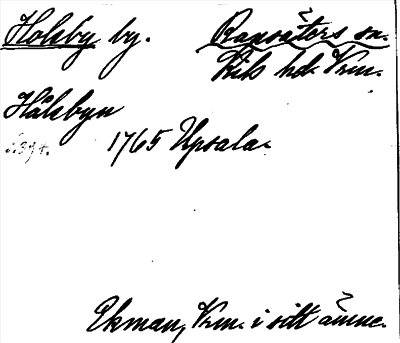 Holsby by. Ransäters sn.
Kils hd. Vrm.
Hålsbyn
s. 394.
1765 Upsala.
Ekman, Vrm. i sitt ämne.